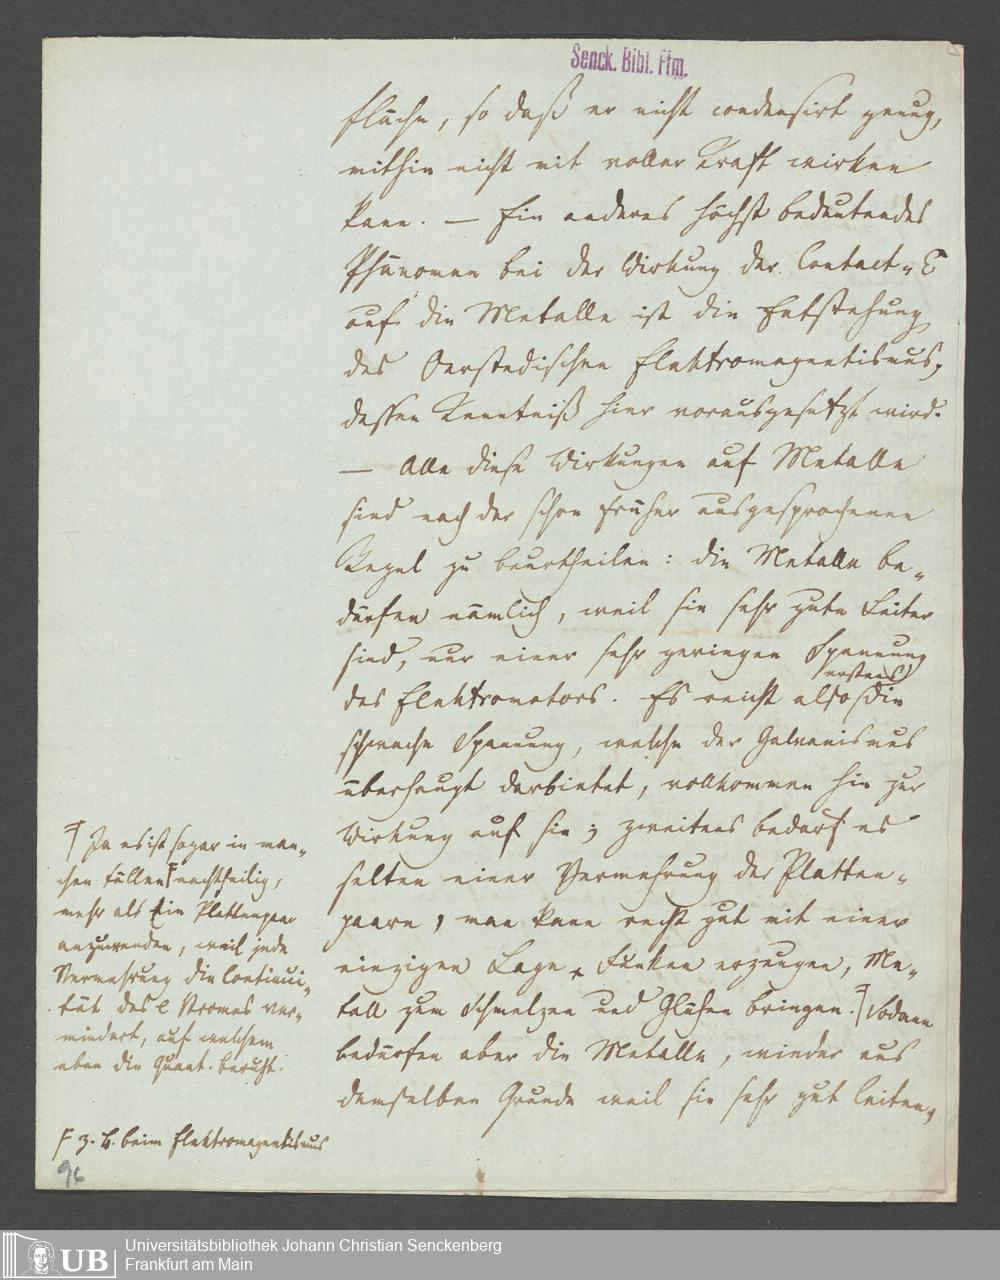 Senck. Bibl. Ffm.
fläche, so daß er nicht condensirt genug,
mithin nicht mit voller Kraft wirken
kann. — Ein anderes höchst bedeutendes
Phänomen bei der Wirkung der Contact-E
auf die Metalle ist die Entstehung
des Oerstedischen Elektromagnetismus,
dessen Kenntniß hier vorausgesetzt wird.
— Alle diese Wirkungen auf Metalle
sind nach der schon früher ausgesprochenen
Regel zu beurtheilen: die Metalle be-
dürfen nämlich, weil sie sehr gute Leiter
sind, nur einer sehr geringen Spannung
des Elektromotors. Es reicht also erstens die
schwache Spannung, welche der Galvanismus
überhaupt darbietet, vollkommen hin zur
Wirkung auf sie; zweitens bedarf es
selten einer Vermehrung der Platten-
paare, man kann recht gut mit einer
einzigen Lage Funken erzeugen, Me-
tall zum Schmelzen und Glühen bringen. Sodann
bedürfen aber die Metalle, wieder aus
demselben Grunde weil sie sehr gut leiten,
Ja es ist sogar in man-
chen Fällen nachtheilig,
mehr als Ein Plattenpaar
anzuwenden, weil jede
Vermehrung die Continui-
tät des e Stromes ver-
mindert, auf welchem
eben die Quant. beruht.
z. B. beim Elektromagnetismus
96
UB
Universitätsbibliothek Johann Christian Senckenberg
Frankfurt am Main